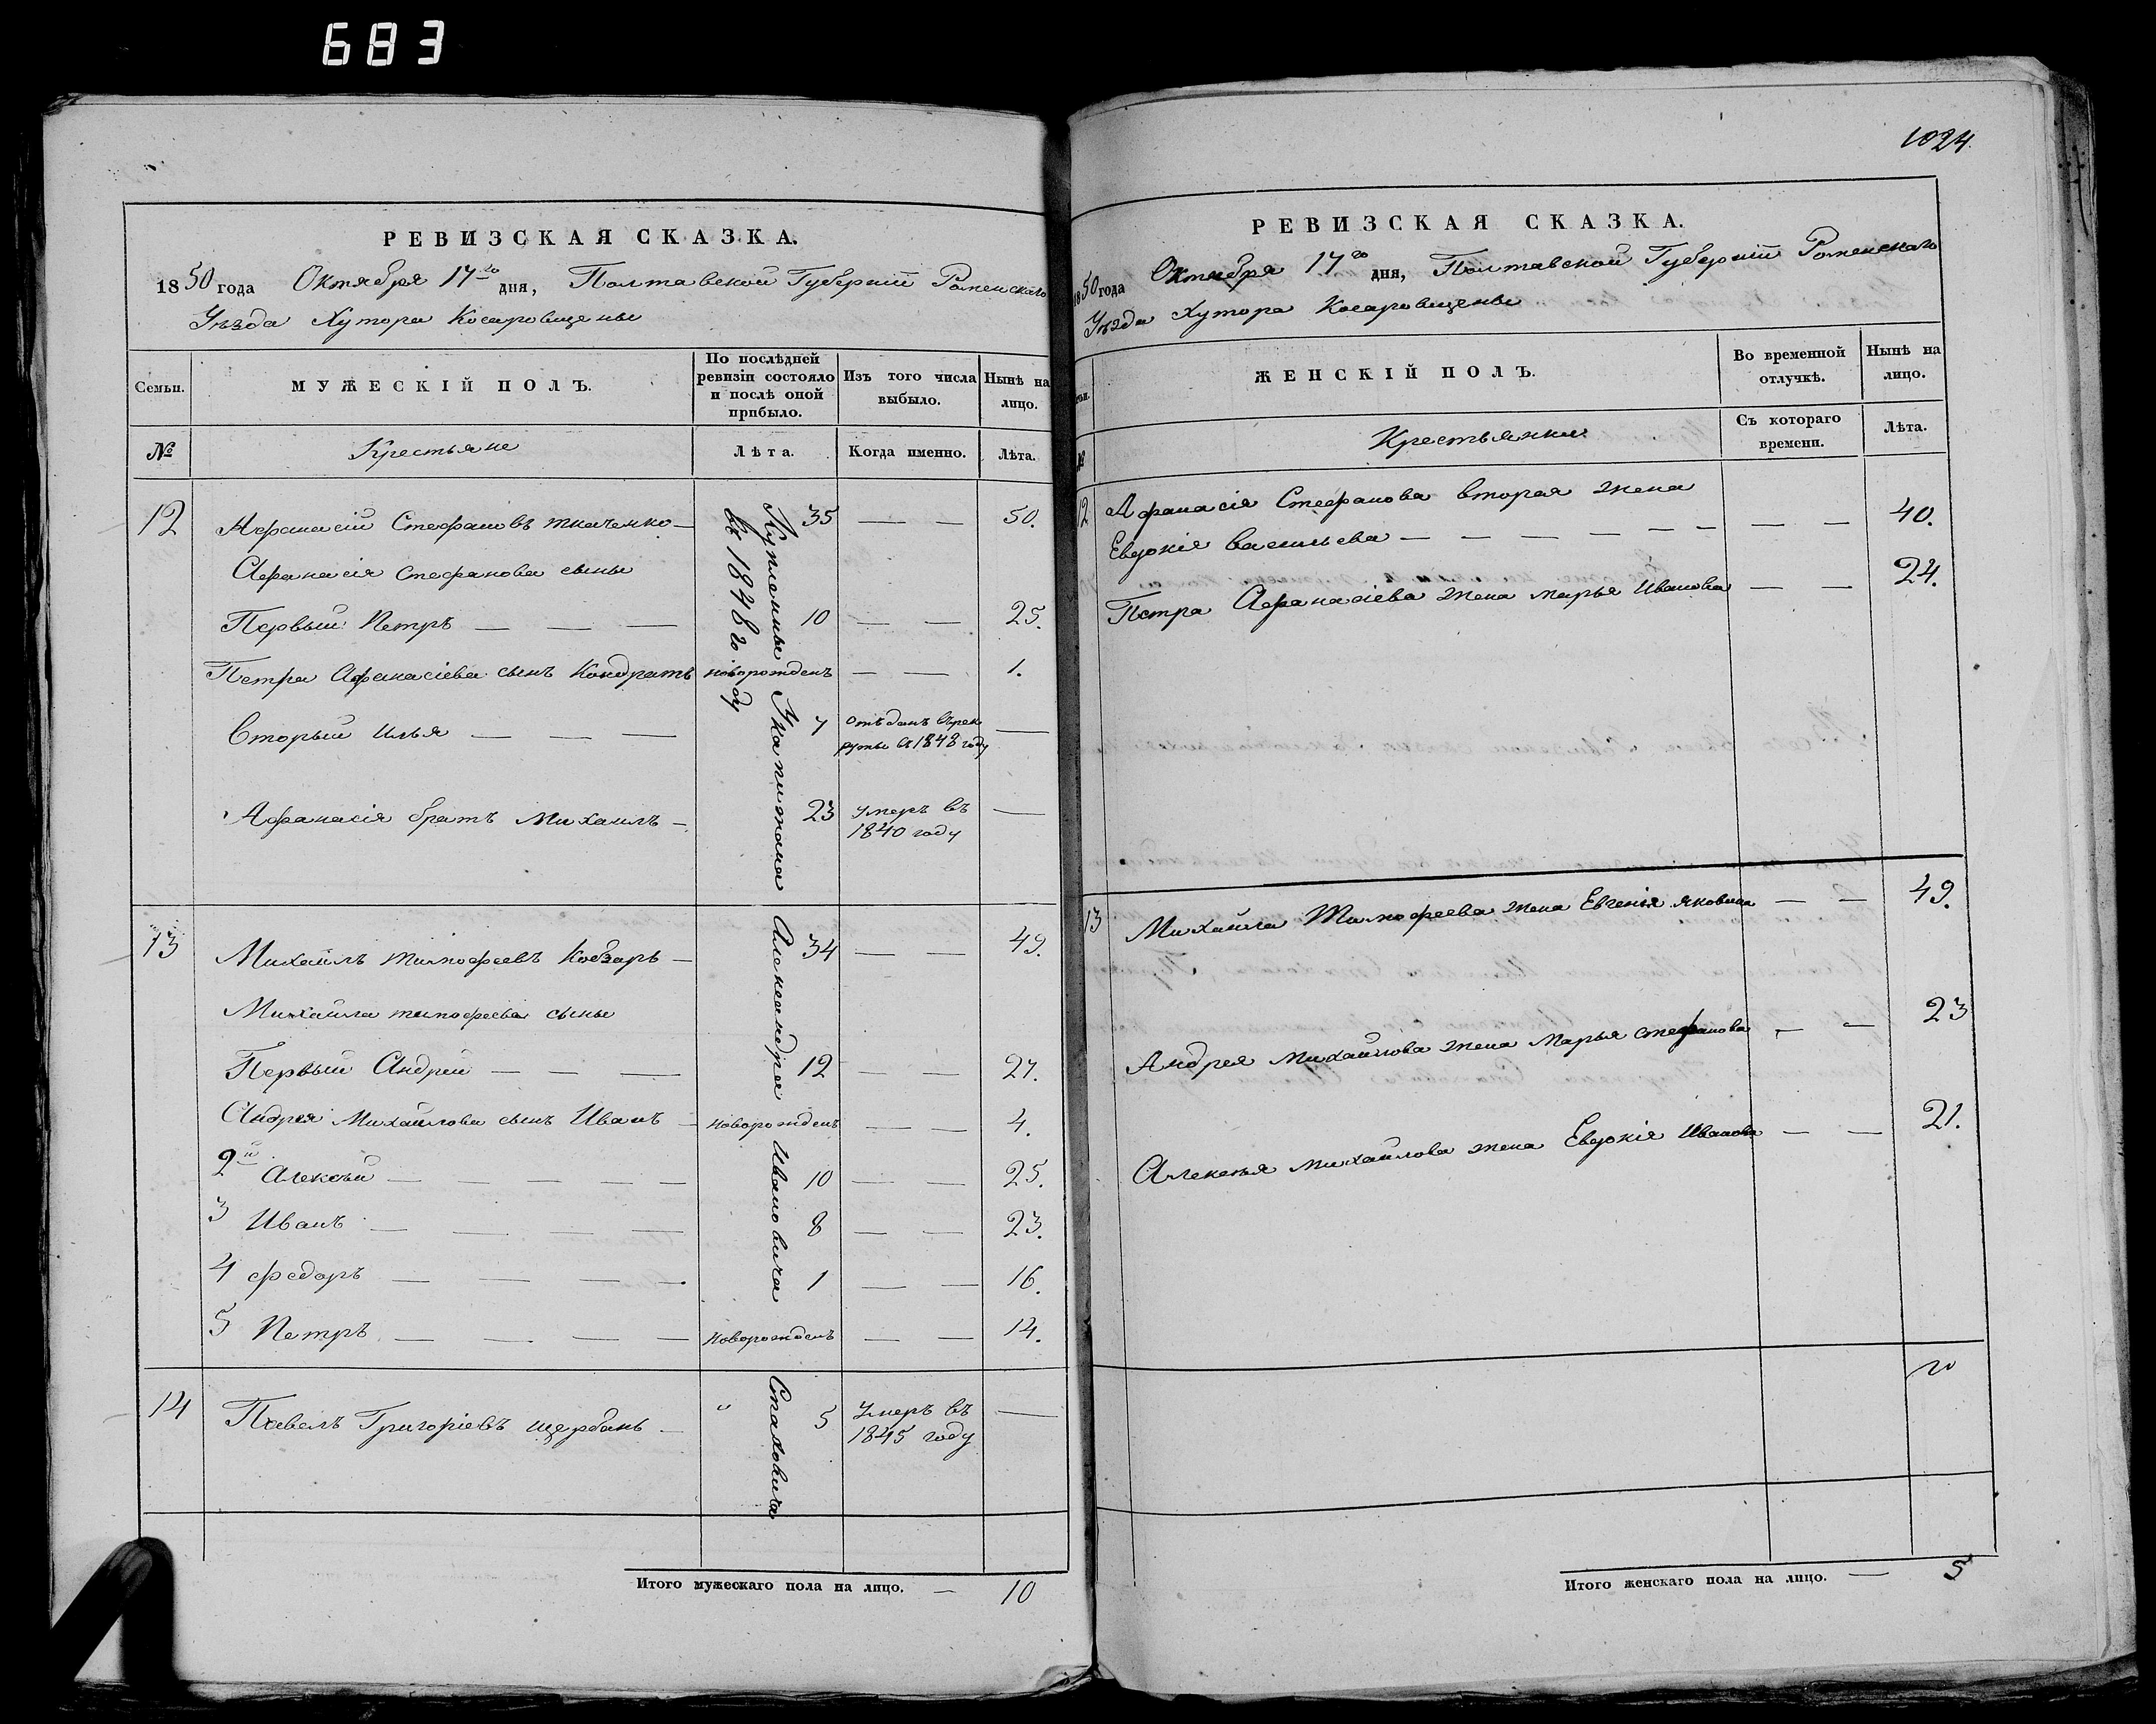 683
РЕВИЗСКАЯ СКАЗКА.
1850 года Октября 17го дня, Полтавской Губернiи Роменскаго
Уѣзда Хутора Косаровщены
Семьи.
МУЖЕСКІЙ ПОЛЪ.
По послѣдней ревизіи состояло и послѣ оной прибыло.
Изъ того числа выбыло.
Нынѣ на лицо.
№
Крестьяне
Лѣта.
Когда именно.
Лѣта.
Купленные у Капитана Александра Ивановича Стаховича
въ 1848го году
12 Афанасій Стефановъ ткаченко — 35 — — 50.
Афанасія Стефанова сыны
Первый Петръ — — — 10 — — 25.
Петра Афанасіева сынъ Кондратъ новорожденъ — — 1.
Вторый Илья — — — 7 отъданъ въ рек
руты въ 1848 году —
Афанасія братъ Михаилъ — 23 умеръ въ
1840 году —
13 Михаилъ Тимофеевъ Кобзарь — 34 — — 49.
Михайла тимофеева сыны
Первый Андрей — — — 12 — — 27.
Андрея Михайлова сынъ Иванъ — новорожденъ — — 4.
2й Алексѣй — — — — — 10 — — 25.
3 Иванъ — — — 8 — — 23.
4 федоръ — — — — 1 — — 16.
5 Петръ — — — — новорожденъ — — 14.
14 Павелъ Григоріевъ щербань — " 5 Умеръ въ
1845 году —
Итого мужескаго пола на лицо. — 10
1024.
РЕВИЗСКАЯ СКАЗКА.
1850 года Октября 17го дня, Полтавской Губерніи Роменскаго
Уѣзда Хутора Косаровщены
ЖЕНСКІЙ ПОЛЪ.
Во временной отлучкѣ.
Нынѣ на лицо.
№
Крестьянки
Съ котораго времени.
Лѣта.
12 Афанасія Стефанова вторая жена
Евдокія Васильева — — — — — — — — 40.
Петра Афанасіева жена марья Иванова — — 24.
13 Михайла Тимофеева жена Евгенія Яковлева — — 49.
Андрея Михайлова жена Марья стефанова — — 23
Алексѣя михайлова жена Евдокія Иванова — — 21.
Итого женскаго пола на лицо. — 5